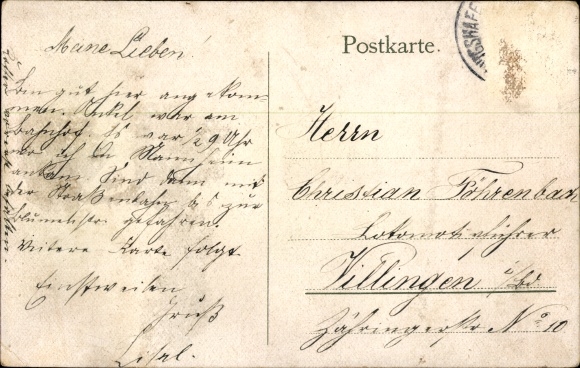 Meine Lieben!
Bin gut hier angekom-
men. Onkel war am
Bahnhof. Es war 1/2 9 Uhr
wo ich in Mannheim
ankam. Sind dann mit
der Straßenbahn bis zur
Blumenstr. gefahren.
Weitere Karte folgt.
Einstweilen
Gruß
Lisel.
Postkarte.
Herrn
Christian Föhrenbach
Lokomotivführer
Villingen i/Bd
Zähringerstr No 10